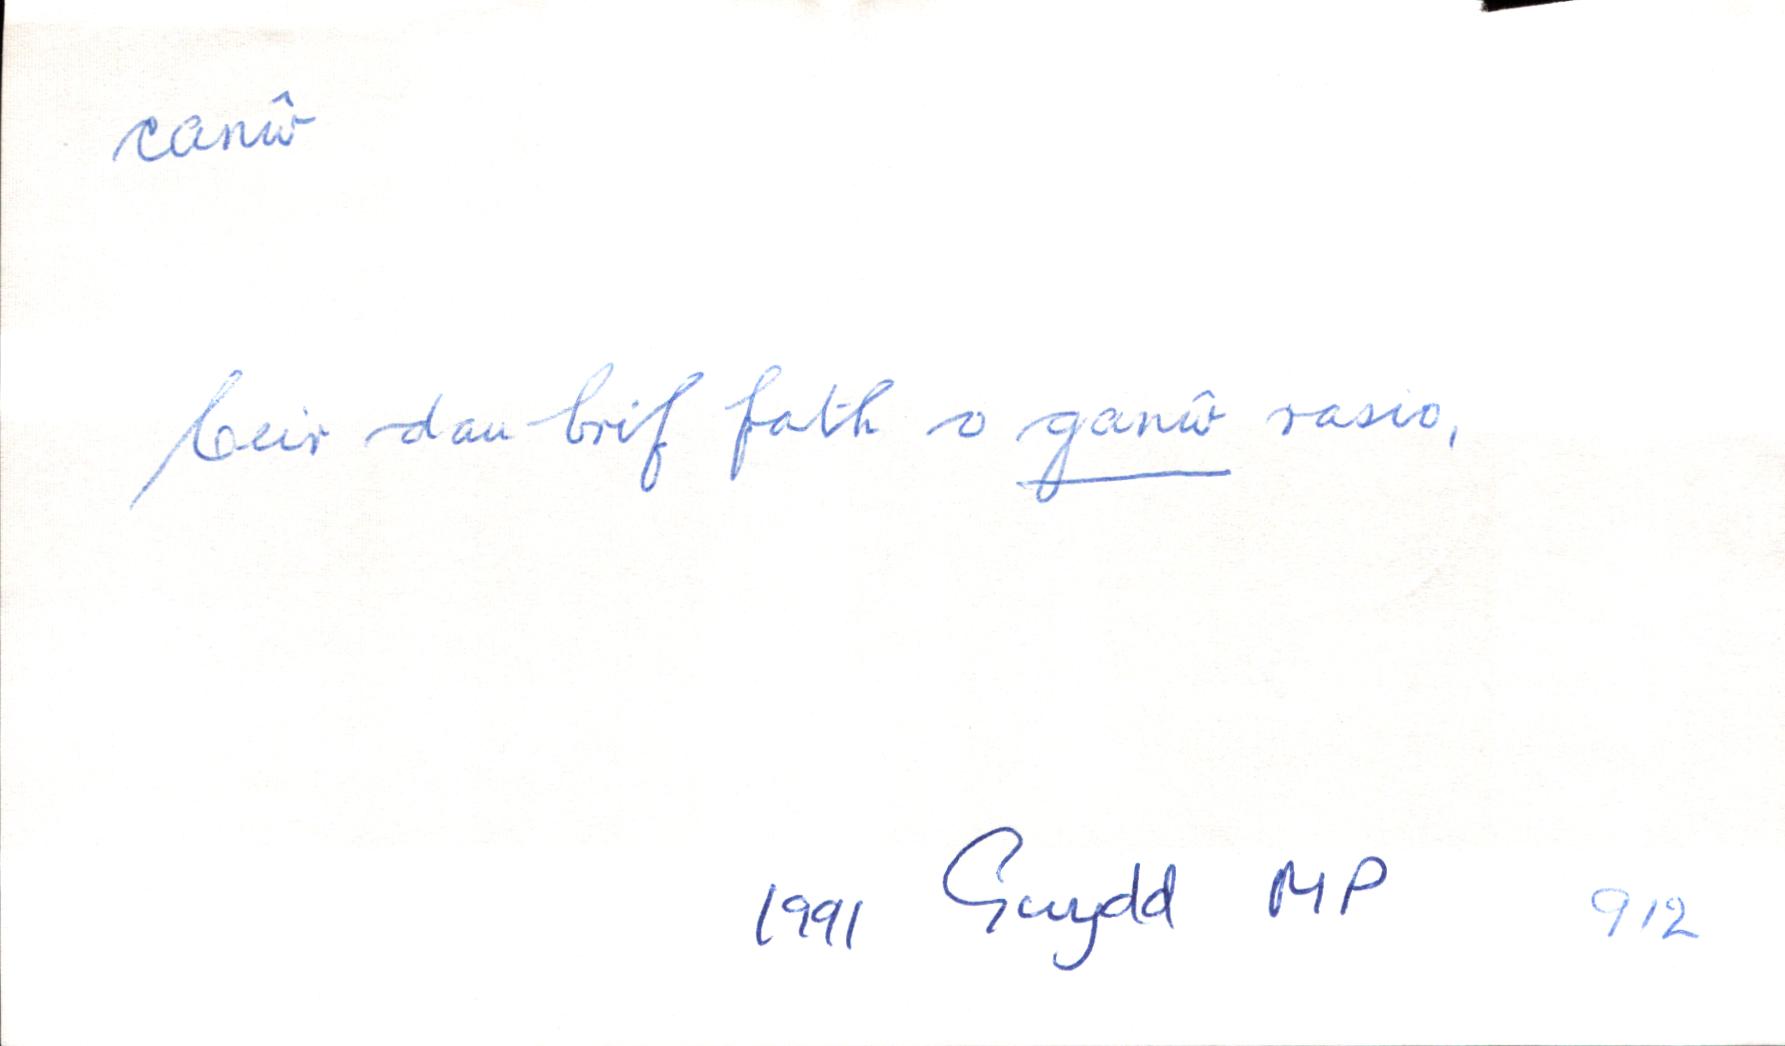 canŵ
Ceir dau brif fath o ganŵ rasio,
1991 Gwydd MP 912